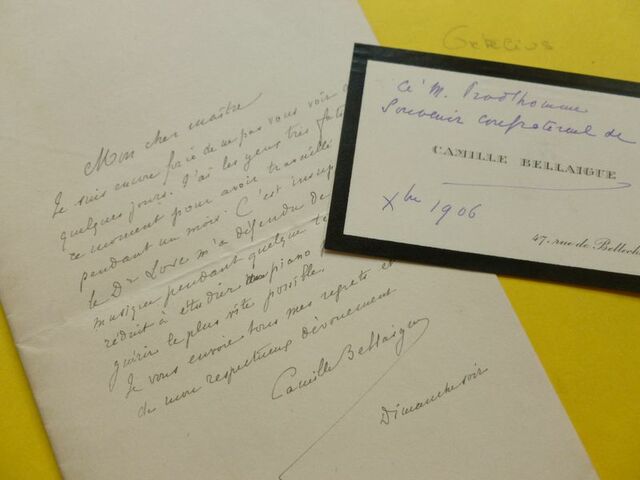 Mon cher maître
Je suis encore forcé de ne pas vous voir
quelques jours. J'ai les yeux très
ce moment pour avoir travaillé
pendant un mois. C'est
le Dr m'a défendu de
musique pendant quelque
réduit à étudier piano
guérir le plus vite possible.
Je vous envoie tous mes regrets
de mon respectueux dévouement
Camille Bellaigue
Dimanche soir
à M. Prodhomme
Souvenir confraternel de
CAMILLE BELLAIGUE
Xbre 1906
47, rue de Bellech